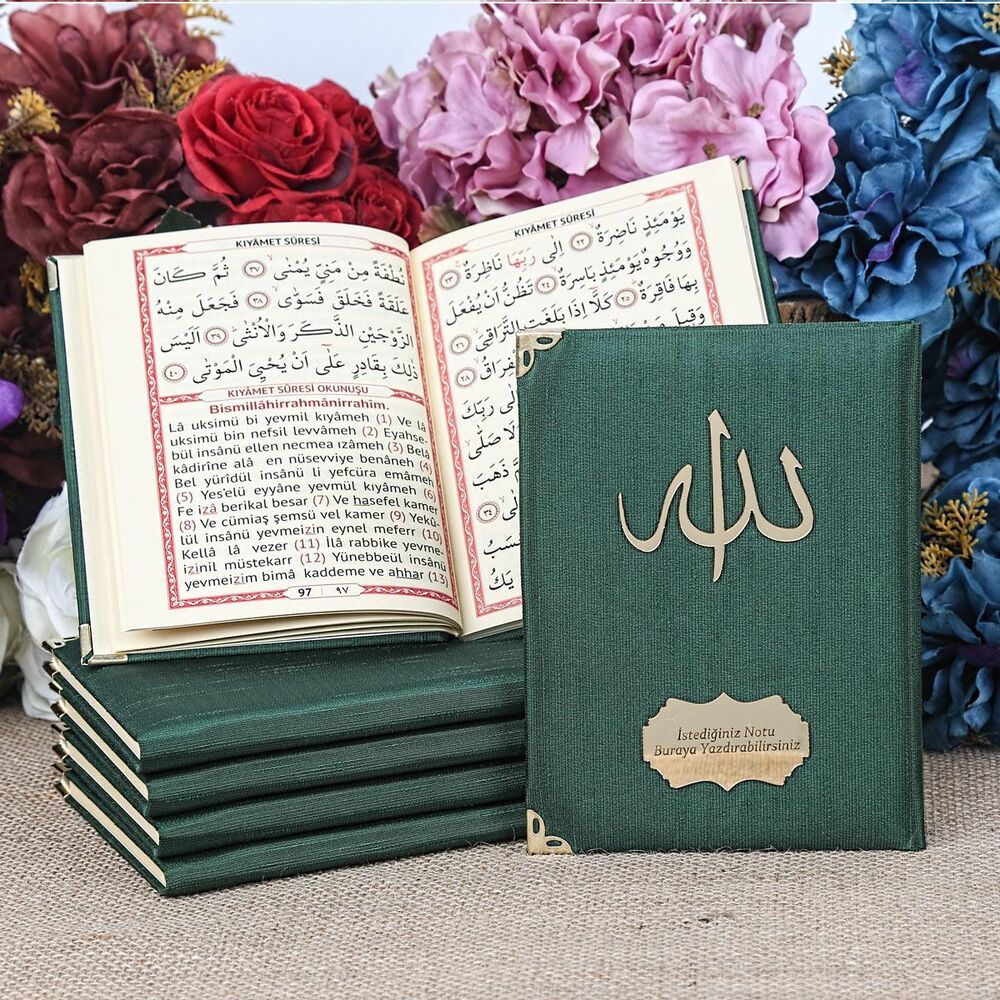 KIYÂMET SÛRESİ
يَوْمَئِذٍ نَاضِرَةٌ ﴿٢٢﴾ اِلٰى رَبِّهَا نَاظِرَةٌ ﴿٢٣﴾
وَوُجُوهٌ يَوْمَئِذٍ بَاسِرَةٌ ﴿٢٤﴾ تَظُنُّ اَنْ يُفْعَلَ
بِهَا فَاقِرَةٌ ﴿٢٥﴾ كَلَّٓا اِذَا بَلَغَتِ التَّرَاقِيَ ﴿٢٦﴾
وَقِيلَ
رَبِّكَ
صَلّٰى
ذَهَبَ
KIYÂMET SÛRESİ
نُطْفَةً مِنْ مَنِيٍّ يُمْنٰى ﴿٣٧﴾ ثُمَّ كَانَ
عَلَقَةً فَخَلَقَ فَسَوّٰى ﴿٣٨﴾ فَجَعَلَ مِنْهُ
الزَّوْجَيْنِ الذَّكَرَ وَالْاُنْثٰى ﴿٣٩﴾ اَلَيْسَ
ذٰلِكَ بِقَادِرٍ عَلٰٓى اَنْ يُحْيِيَ الْمَوْتٰى ﴿٤٠﴾
KIYÂMET SÛRESİ OKUNUŞU
Bismillâhirrahmânirrahîm.
Lâ uksimü bi yevmil kıyâmeh (1) Ve lâ
uksimü bin nefsil levvâmeh (2) Eyahse-
bül insânü ellen necmea ızâmeh (3) Belâ
kâdirîne alâ en nüsevviye benâneh (4)
Bel yürîdül insânü li yefcüra emâmeh
(5) Yes'elü eyyâne yevmül kıyâmeh (6)
Fe izâ berikal besar (7) Ve hasefel kamer
(8) Ve cümiaş şemsü vel kamer (9) Yekû-
lül insânü yevmeizin eynel meferr (10)
Kellâ lâ vezer (11) İlâ rabbike yevme-
izinil müstekarr (12) Yünebbeül insânü
yevmeizim bimâ kaddeme ve ahhar (13)
97 ٩٧
الله
İstediğiniz Notu
Buraya Yazdırabilirsiniz